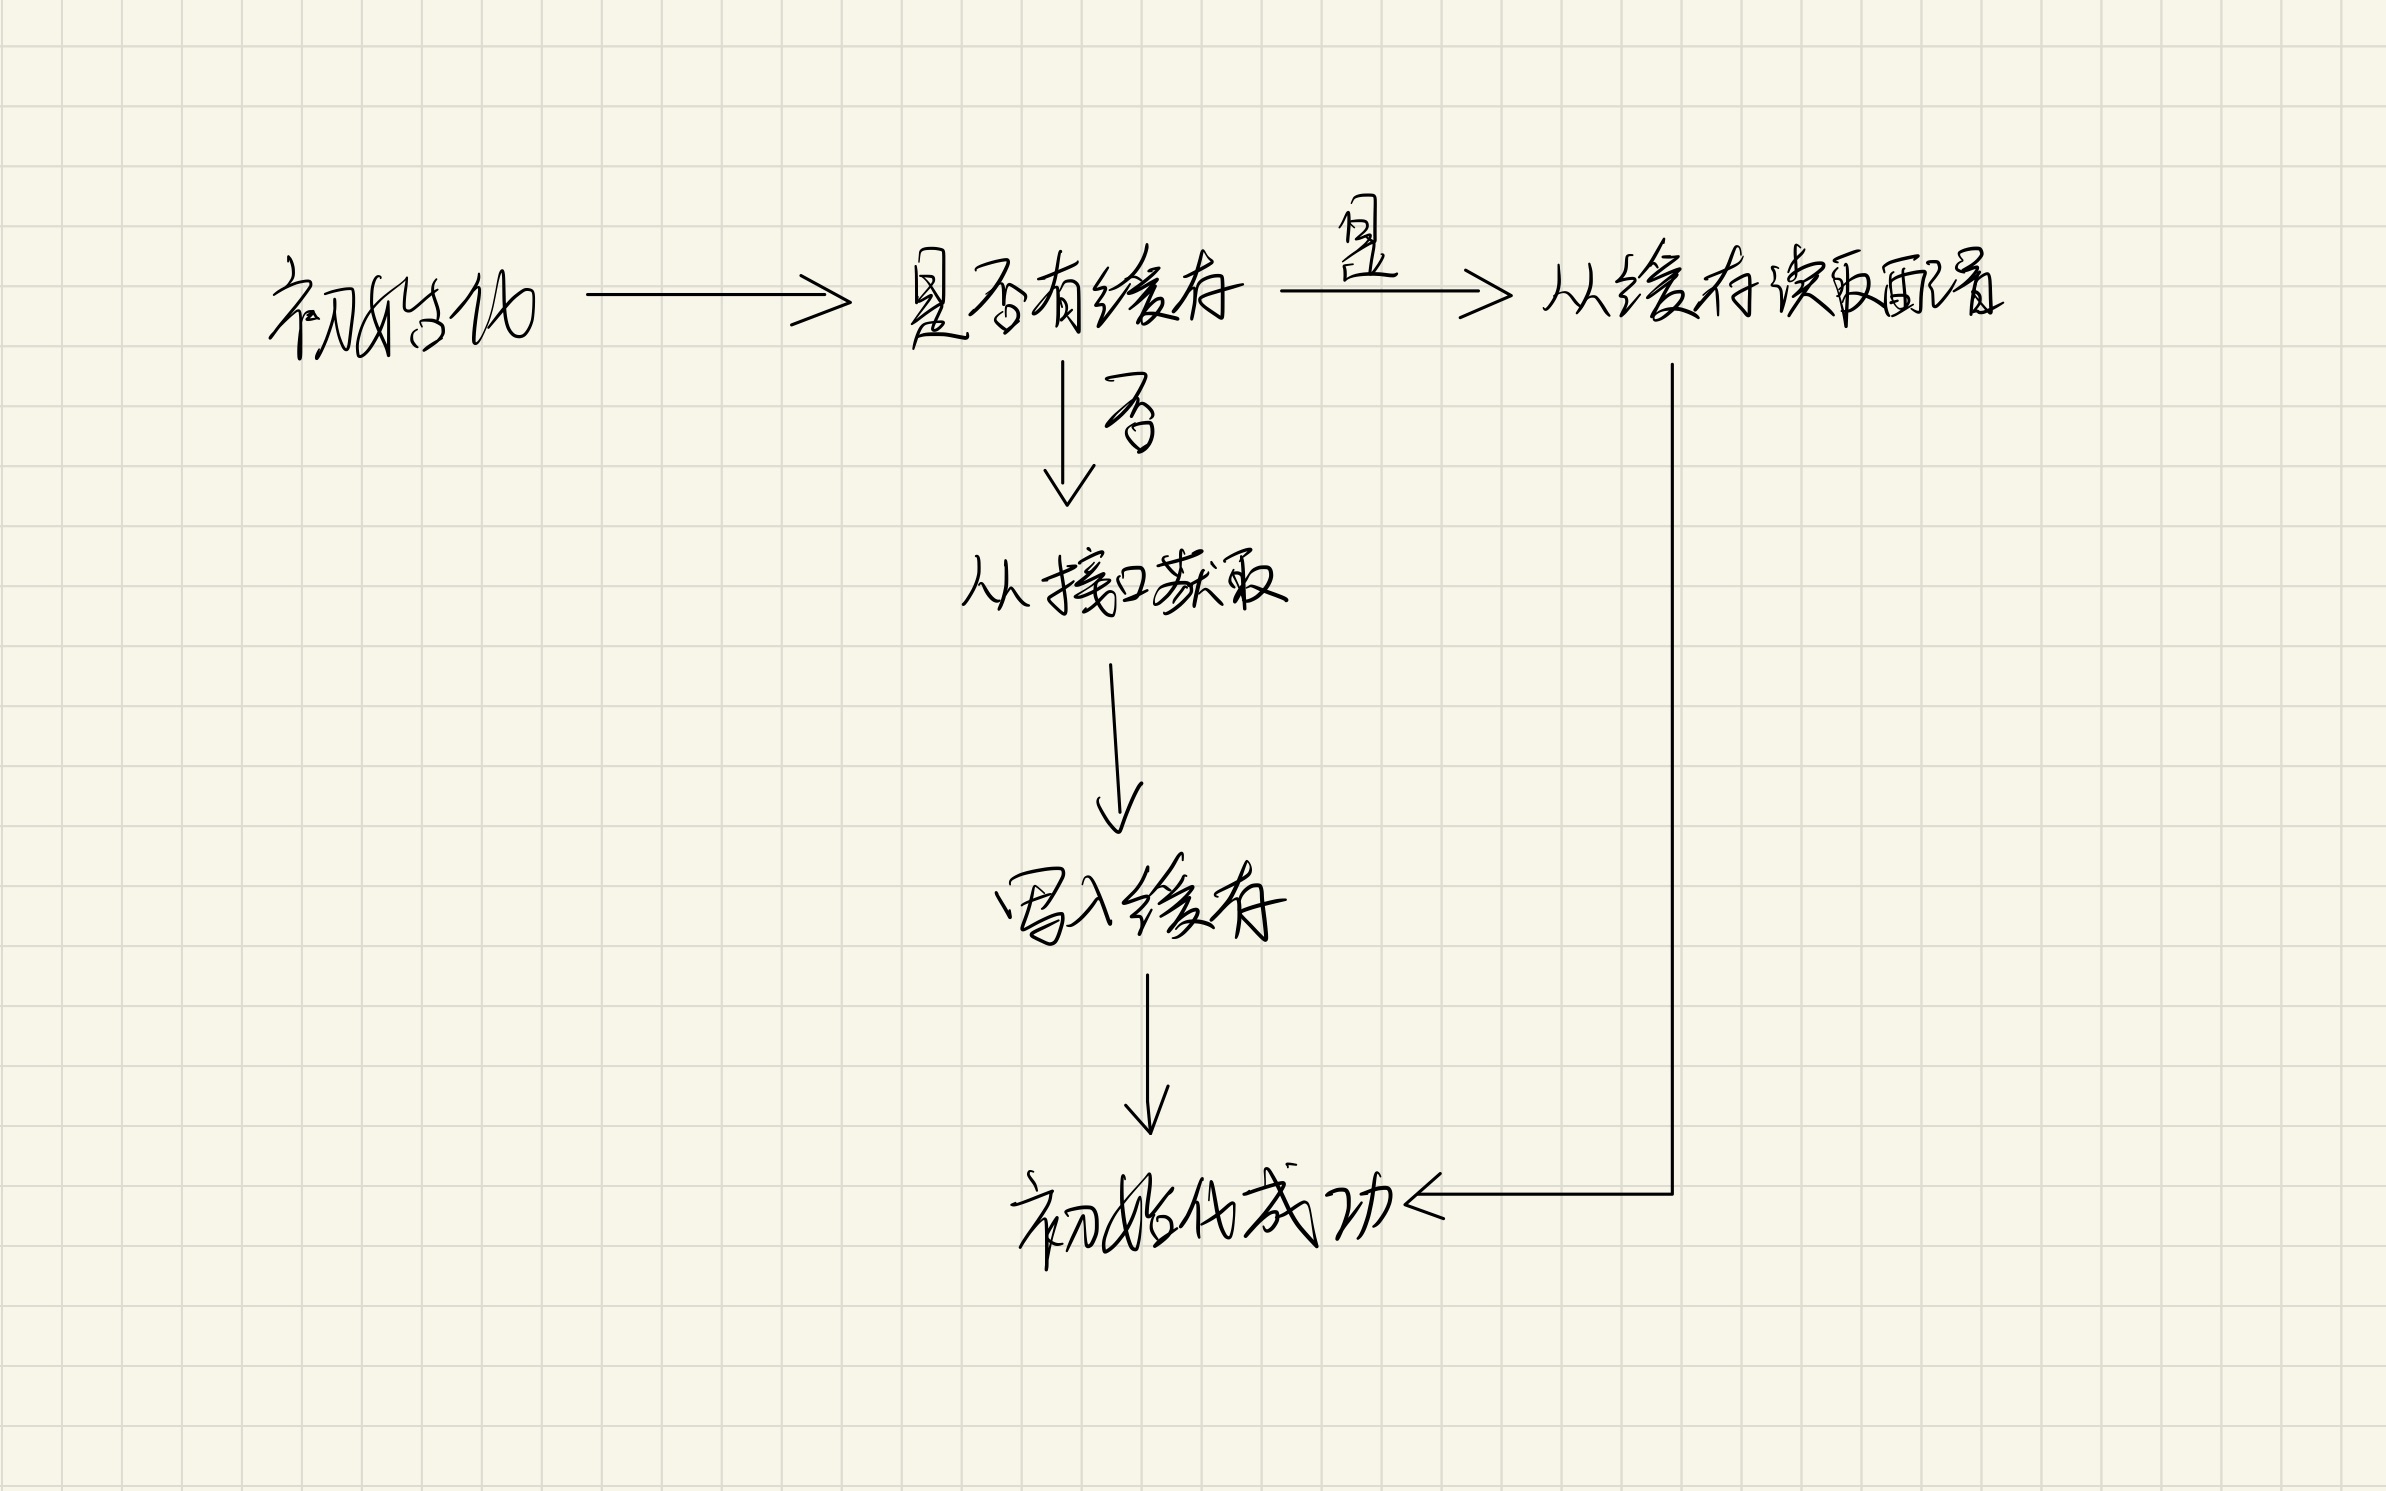 初始化
是否有缓存
是
从缓存读取配置
否
从接口获取
写入缓存
初始化成功